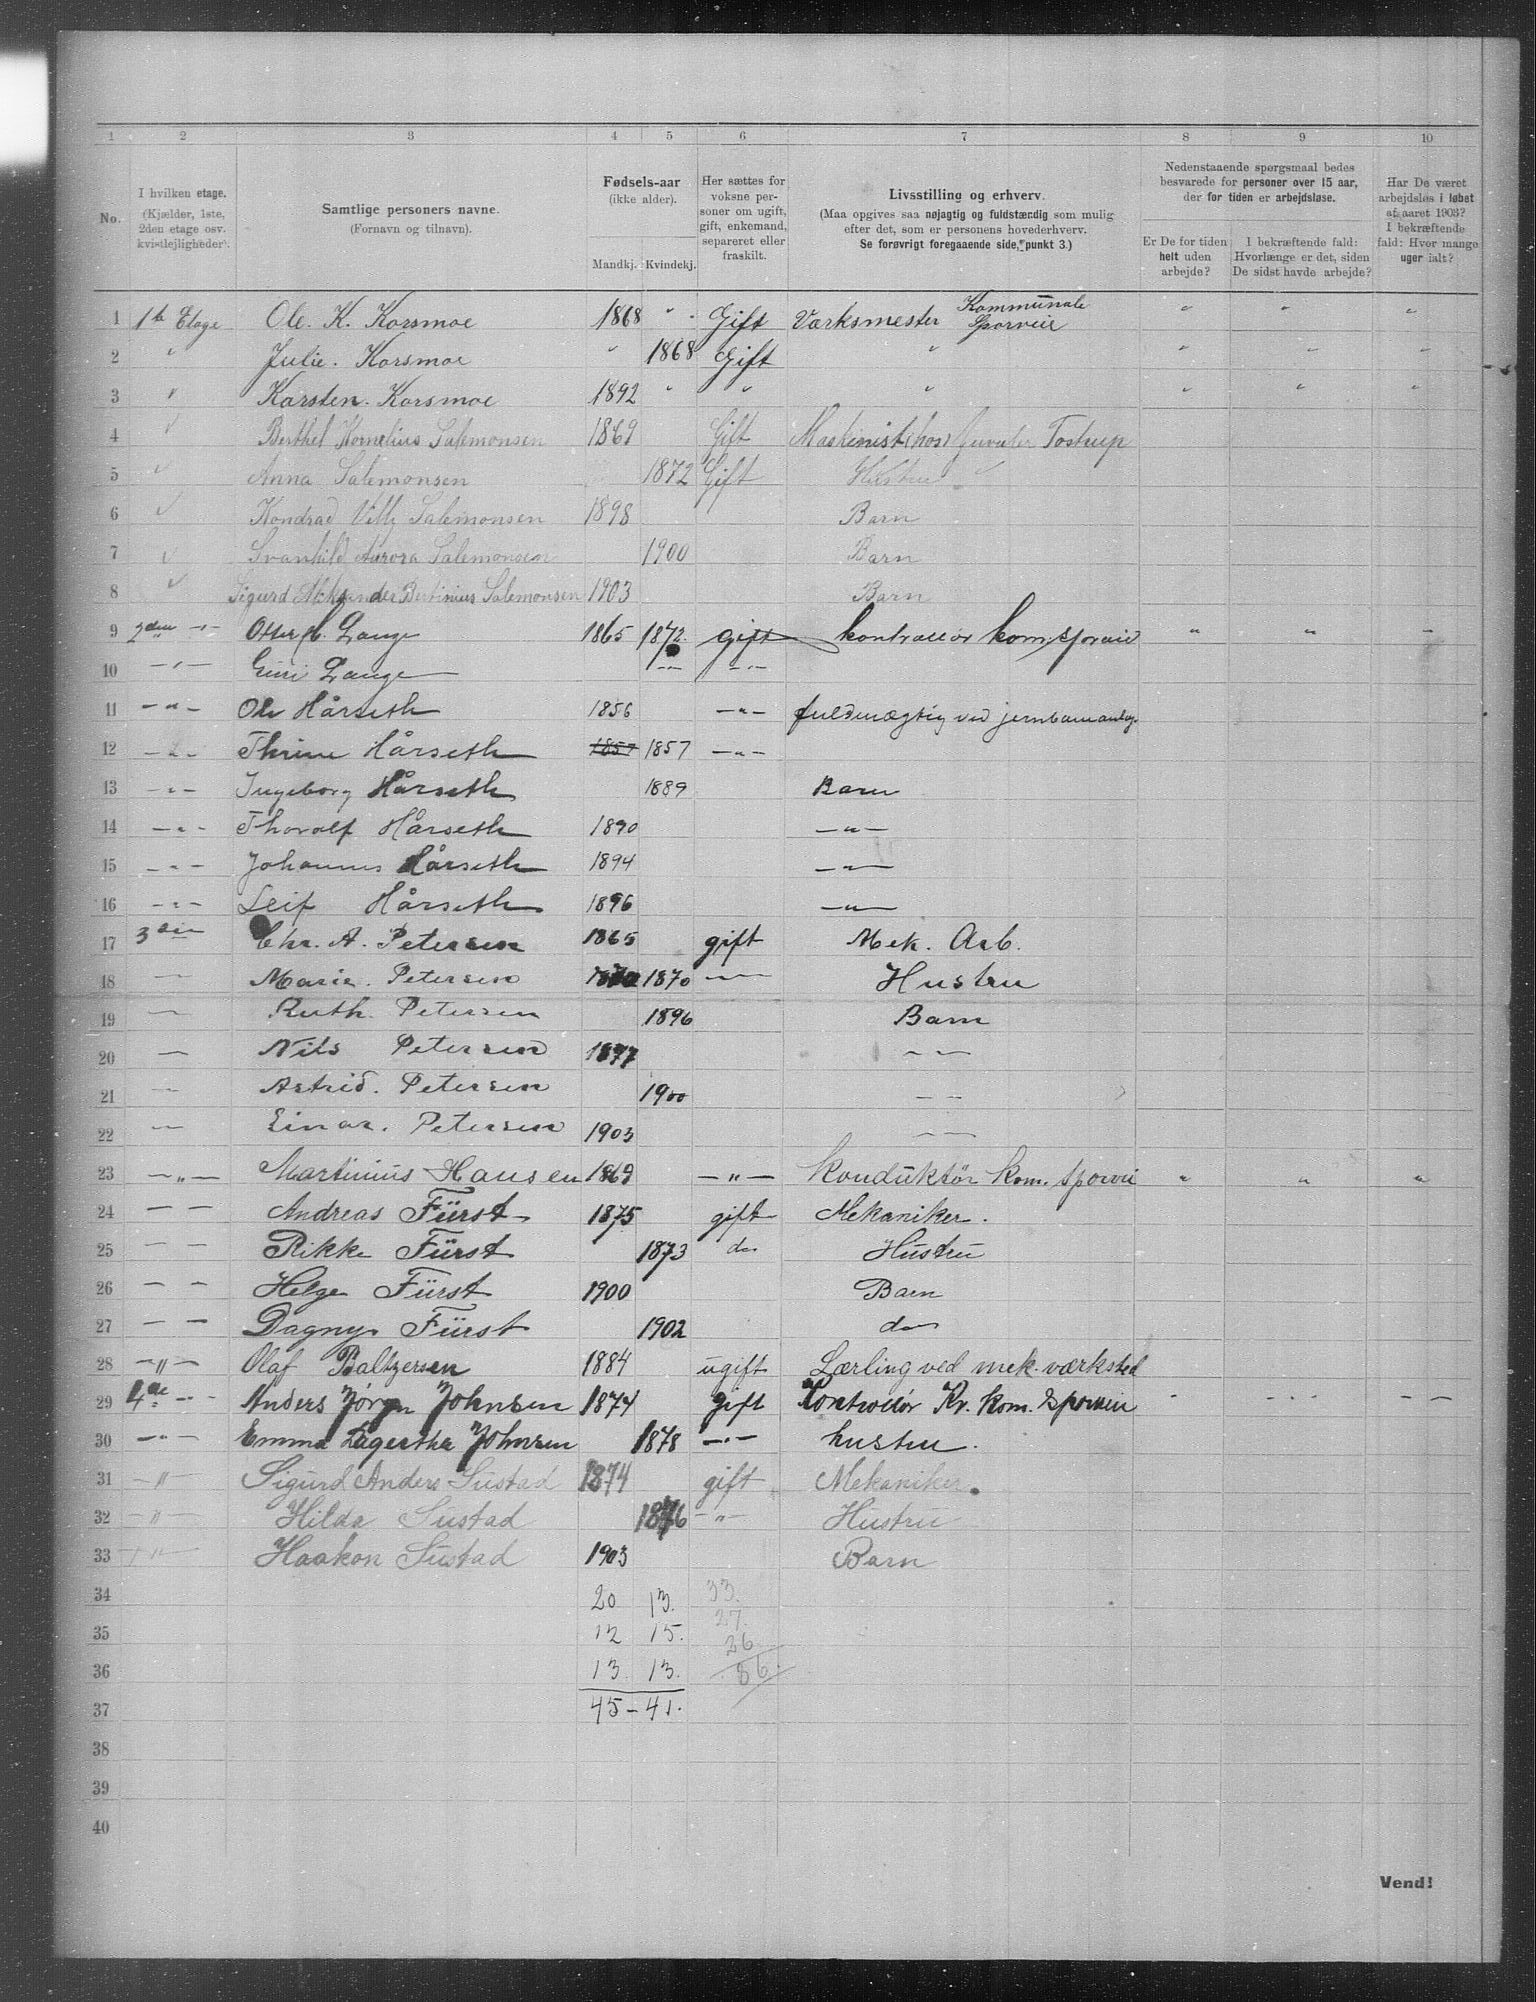 1 2 3 4 5 6 7 8 9 10
No.
I hvilken etage.
(Kjælder, 1ste,
2den etage osv.
kvistlejligheder).
Samtlige personers navne.
(Fornavn og tilnavn).
Fødsels-aar
(ikke alder).
Mandkj. Kvindekj.
Her sættes for
voksne per-
soner om ugift,
gift, enkemand,
separeret eller
fraskilt.
Livsstilling og erhverv.
(Maa opgives saa nøjagtig og fuldstændig som mulig
efter det, som er personens hovederhverv.
Se forøvrigt foregaaende side, punkt 3.)
Nedenstaaende spørgsmaal bedes
besvarede for personer over 15 aar,
der for tiden er arbejdsløse.
Er De for tiden
helt uden
arbejde?
I bekræftende fald:
Hvorlænge er det, siden
De sidst havde arbejde?
Har De været
arbejdsløs i løbet
af aaret 1903?
I bekræftende
fald: Hvor mange
uger ialt?
1 1ste Etage Ole. K. Korsmoe 1868 " Gift Værksmester Kommunale Sporveie " " "
2 " Julie. Korsmoe " 1868 Gift " " " "
3 " Karsten. Korsmoe 1892 " " " " " "
4 " Berthel Kornelius Salemonsen 1869 Gift Maskinist (hos) Juveler Tostrup
5 " Anna Salemonsen 1872 Gift Hustru
6 " Kondrad Villy Salemonsen 1898 Barn
7 " Svanhild Aurora Salemonsen 1900 Barn
8 " Sigurd Aleksander Bertinius Salemonsen 1903 Barn
9 2den -"- Otter Lange 1865 1872. gift kontrollør kom. sporvei " " "
10 -"- Guri Lange -"- -"-
11 -"- Ole Hårseth 1856 -"- fuldmægtig ved jernbaneanlæg.
12 -"- Thrine Hårseth 1857 1857 -"-
13 -"- Ingeborg Hårseth 1889 Barn
14 -"- Thoralf Hårseth 1890 -"-
15 -"- Johannes Hårseth 1894 -"-
16 -"- Leif Hårseth 1896 -"-
17 3die Chr. A. Petersen 1865 gift Mek. Arb.
18 — Marie. Petersen 1870 1870 — Hustru
19 — Ruth. Petersen 1896 Barn
20 — Nils Petersen 1897 — —
21 — Astrid. Petersen 1900 — —
22 — Einar. Petersen 1903 — —
23 -"- Martinius Hansen 1869 -"- Konduktør kom. sporvei " " "
24 — — Andreas Fürst 1875 gift Mekaniker.
25 — — Rikke Fürst 1873 do Hustru
26 — — Helge Fürst 1900 Barn
27 — — Dagny Fürst 1902 do
28 -"- Olaf Baltzersen 1884 ugift Lærling ved mek. værksted
29 4de -"- Anders Jørgen Johnsen 1874 gift Kontrollør Kr. kom. Sporvei - - —
30 -"- Emma Lagertha Johnsen 1878 -"- hustru.
31 -"- Sigurd Anders Sustad 1874 gift Mekaniker.
32 -"- Hilda Sustad 1876 -"- Hustru
33 -"- Haakon Sustad 1903 Barn
34 20 13. 33.
35 12 15. 27.
36 13. 13. 26
86.
37 45 - 41.
38
39
40
Vend!